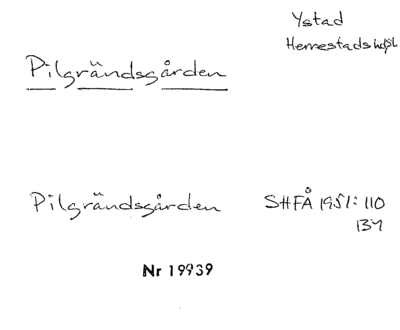 Ystad
Herrestads hrsh
Pilgrändsgården
Pilgrändsgården SHFÅ 1951: 110
134
Nr 19939